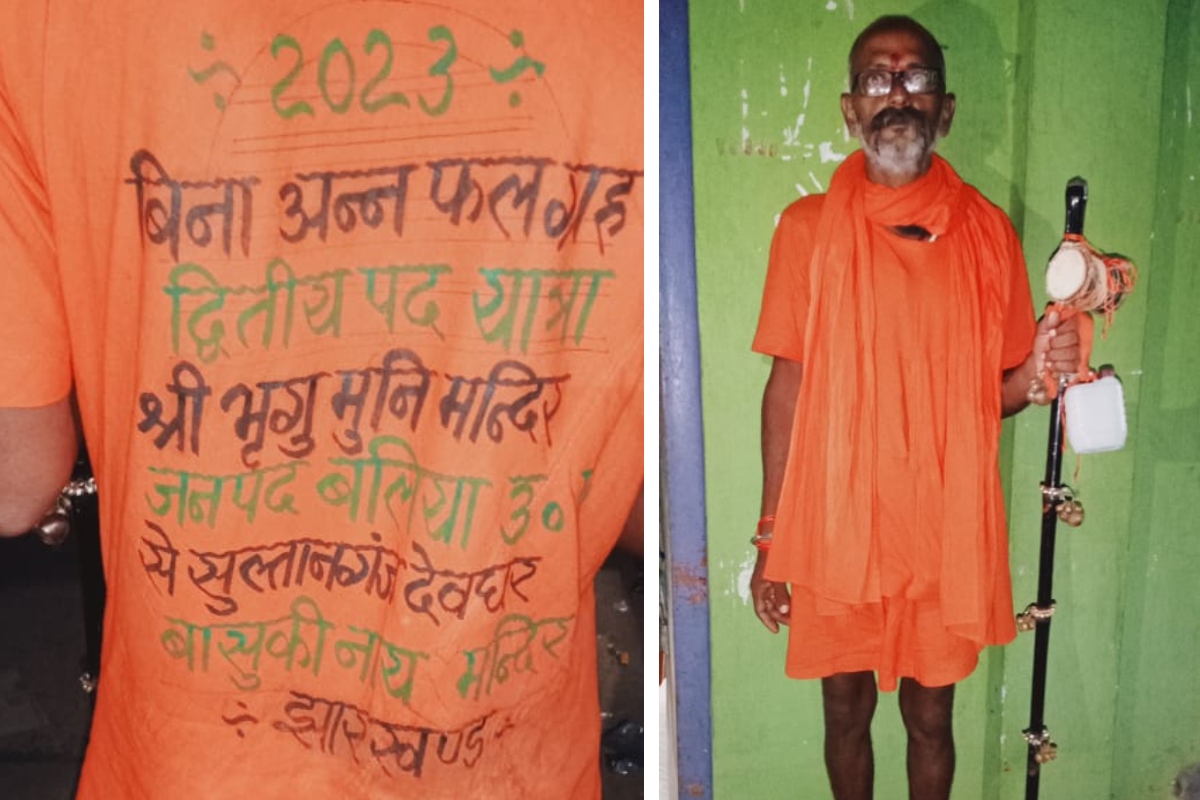 ÷ 2023 ÷
बिना अन्न फल ग्रह
द्वितीय पद यात्रा
श्री भृगु मुनि मन्दिर
जनपद बलिया उ०
से सुल्तानगंज देवघर
बासुकी नाथ मन्दिर
÷ झारखण्ड ÷